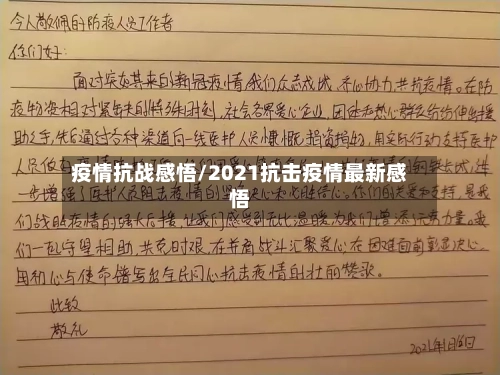 令人敬佩的防疫人员工作者
你们好:
面对突如其来的新冠疫情,我们众志成城、齐心协力、共抗疫情。在防
疫物资相对紧缺的特殊时刻,社会各界爱心企业、团体和热心群众纷纷伸出援
助之手,先后通过各种渠道向一线医护人员慷慨捐资捐物,用实际行动支持医护
人员
疫情抗战感悟/2021抗击疫情最新感
悟
一步增强了医护人员阻击疫情的 心和必胜信心。你们的关爱和支持,是我
们战胜疫情的强大后援,让我们感受到无比温暖,为我们增添了无穷力量。我
们一起守望相助、共克时艰,在并肩战斗汇聚爱心,在困难面前彰显决心,
用初心与使命谱写出全民同心抗击疫情的壮丽赞歌。
此致
敬礼
2021年1月16日